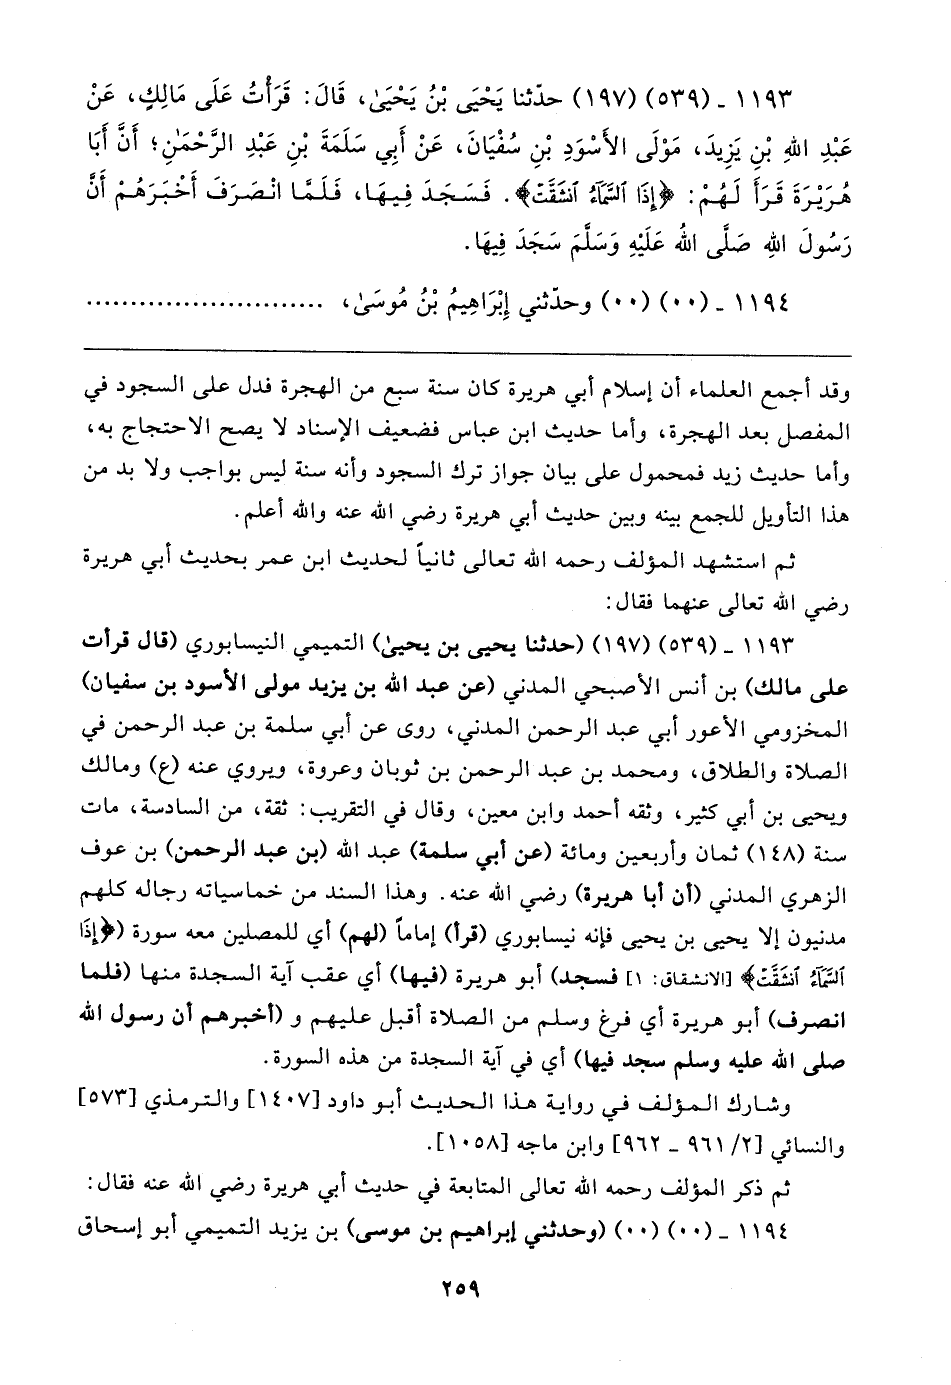 ١١٩٣ ـ (٥٣٩) (١٩٧) حدّثنا يَحْيَى بْنُ يَحْيَىٰ، قَالَ: قَرَأْتُ عَلَى مَالِكٍ، عَنْ
عَبْدِ اللهِ بْنِ يَزِيدَ، مَوْلَى الأَسْوَدِ بْنِ سُفْيَانَ، عَنْ أَبِي سَلَمَةَ بْنِ عَبْدِ الرَّحْمَٰنِ؛ أَنَّ أَبَا
هُرَيْرَةَ قَرَأَ لَهُمْ: ﴿إِذَا ٱلسَّمَآءُ ٱنشَقَّتْ﴾. فَسَجَدَ فِيهَا، فَلَمَّا انْصَرَفَ أَخْبَرَهُمْ أَنَّ
رَسُولَ اللهِ صَلَّى اللهُ عَلَيْهِ وَسَلَّمَ سَجَدَ فِيهَا.
١١٩٤ ـ (٠٠) (٠٠) وحدّثني إِبْرَاهِيمُ بْنُ مُوسَىٰ، ...........................
وقد أجمع العلماء أن إسلام أبي هريرة كان سنة سبع من الهجرة فدل على السجود في
المفصل بعد الهجرة، وأما حديث ابن عباس فضعيف الإسناد لا يصح الاحتجاج به،
وأما حديث زيد فمحمول على بيان جواز ترك السجود وأنه سنة ليس بواجب ولا بد من
هذا التأويل للجمع بينه وبين حديث أبي هريرة رضي الله عنه والله أعلم.
ثم استشهد المؤلف رحمه الله تعالى ثانياً لحديث ابن عمر بحديث أبي هريرة
رضي الله تعالى عنهما فقال:
١١٩٣ ـ (٥٣٩) (١٩٧) (حدثنا يحيى بن يحيىٰ) التميمي النيسابوري (قال قرأت
على مالك) بن أنس الأصبحي المدني (عن عبد الله بن يزيد مولى الأسود بن سفيان)
المخزومي الأعور أبي عبد الرحمن المدني، روى عن أبي سلمة بن عبد الرحمن في
الصلاة والطلاق، ومحمد بن عبد الرحمن بن ثوبان وعروة، ويروي عنه (ع) ومالك
ويحيى بن أبي كثير، وثقه أحمد وابن معين، وقال في التقريب: ثقة، من السادسة، مات
سنة (١٤٨) ثمان وأربعين ومائة (عن أبي سلمة) عبد الله (بن عبد الرحمن) بن عوف
الزهري المدني (أن أبا هريرة) رضي الله عنه. وهذا السند من خماسياته رجاله كلهم
مدنيون إلا يحيى بن يحيى فإنه نيسابوري (قرأ) إماماً (لهم) أي للمصلين معه سورة (﴿إِذَا
ٱلسَّمَآءُ ٱنشَقَّتْ﴾ [الانشقاق: ١] فسجد) أبو هريرة (فيها) أي عقب آية السجدة منها (فلما
انصرف) أبو هريرة أي فرغ وسلم من الصلاة أقبل عليهم و (أخبرهم أن رسول الله
صلى الله عليه وسلم سجد فيها) أي في آية السجدة من هذه السورة.
وشارك المؤلف في رواية هذا الحديث أبو داود [١٤٠٧] والترمذي [٥٧٣]
والنسائي [٢/ ٩٦١ ـ ٩٦٢] وابن ماجه [١٠٥٨].
ثم ذكر المؤلف رحمه الله تعالى المتابعة في حديث أبي هريرة رضي الله عنه فقال:
١١٩٤ ـ (٠٠) (٠٠) (وحدثني إبراهيم بن موسى) بن يزيد التميمي أبو إسحاق
٢٥٩